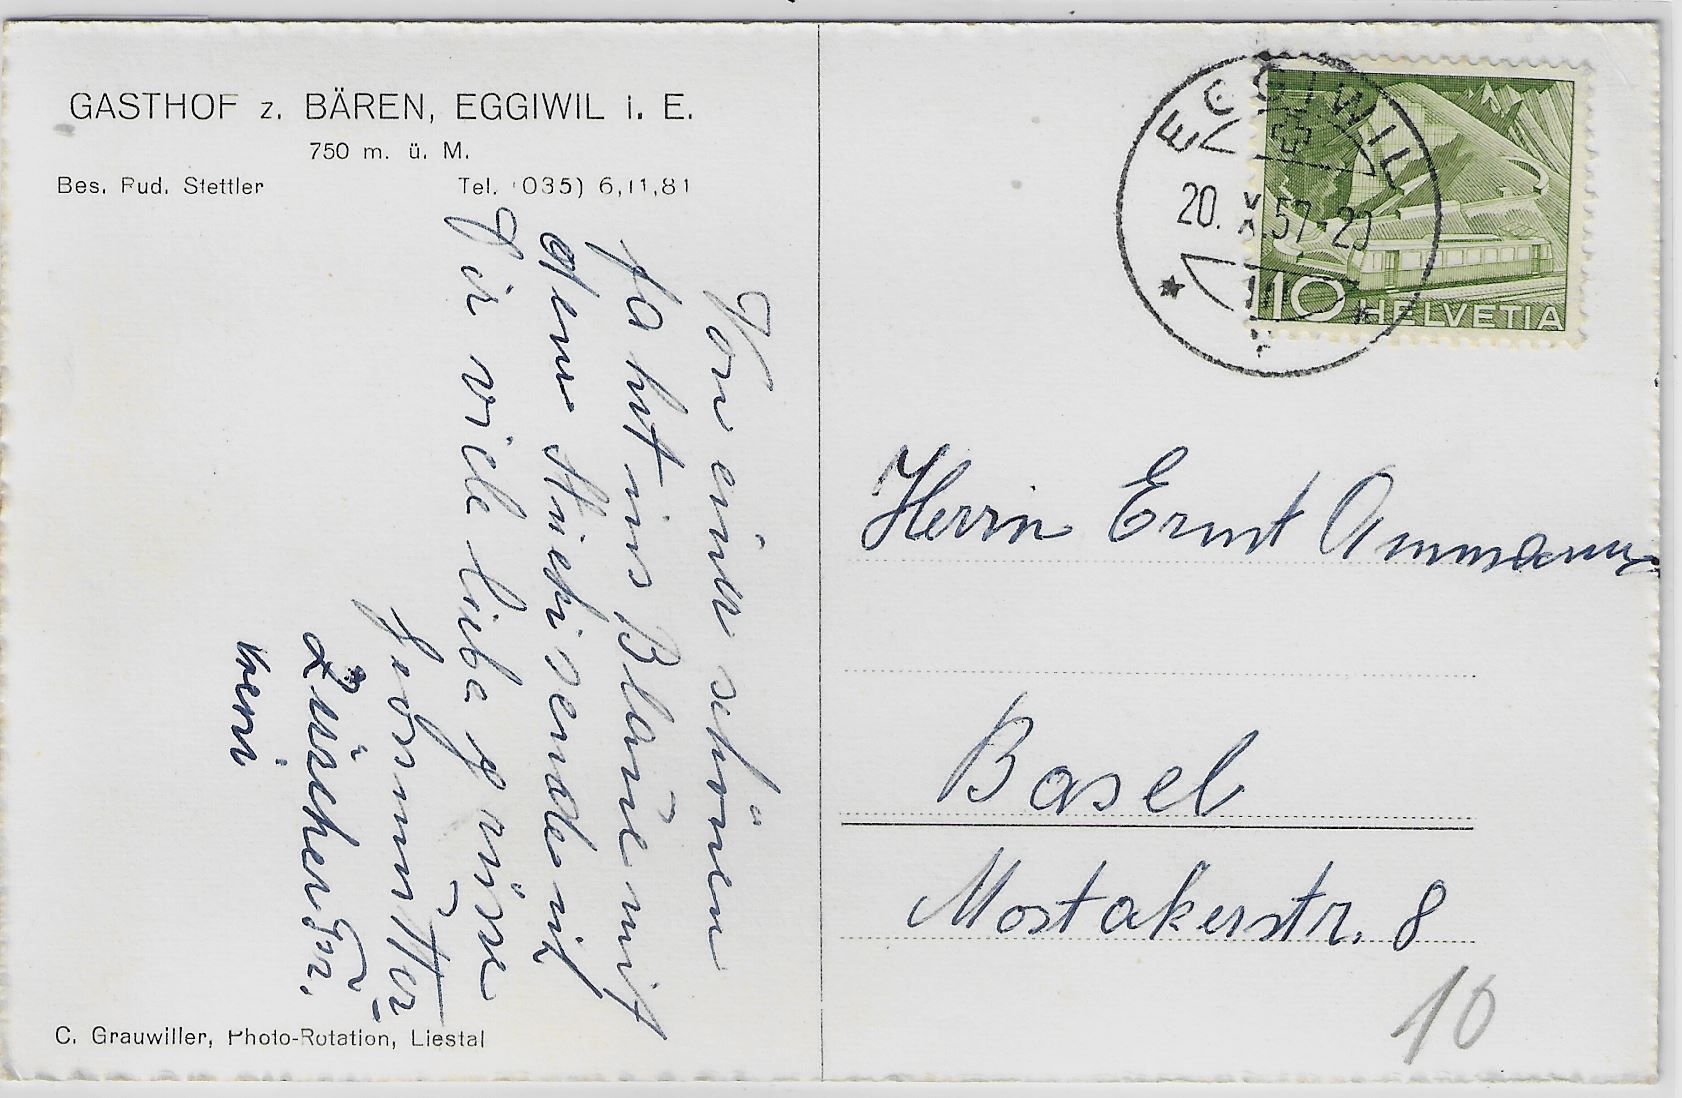 GASTHOF z. BÄREN, EGGIWIL i. E.
750 m. ü. M.
Bes. Rud. Stettler
Tel. (035) 6,11,81
Von einer schönen
fahrt ins Blaue mit
Dir viele liebe grüsse
Zürcherstr.
Vreni
C. Grauwiller, Photo-Rotation, Liestal
EGGIWIL
20. X. 57-20
10 HELVETIA
Herrn Ernst Ammann
Basel
Mostakerstr. 8
10